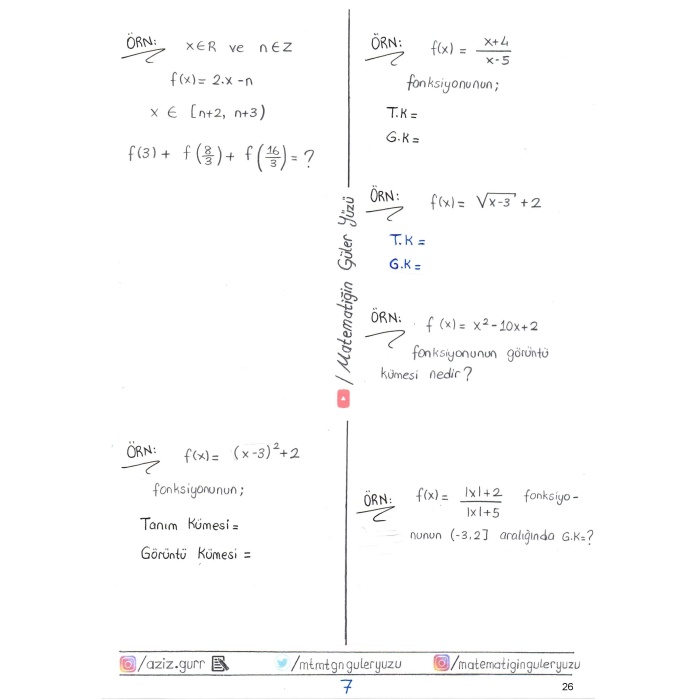 ÖRN: x∈R ve n∈Z
f(x) = 2.x - n
x ∈ [n+2, n+3)
f(3) + f(8/3) + f(16/3) = ?
ÖRN: f(x) = (x-3)²+2
fonksiyonunun;
Tanım Kümesi =
Görüntü Kümesi =
/Matematiğin Güler Yüzü
ÖRN: f(x) = x+4/x-5
fonksiyonunun;
T.K =
G.K =
ÖRN: f(x) = √x-3 + 2
T.K =
G.K =
ÖRN: f(x) = x²-10x+2
fonksiyonunun görüntü
kümesi nedir?
ÖRN: f(x) = |x|+2/|x|+5 fonksiyo-
nunun (-3,2] aralığında G.K=?
/aziz.gurr /mtmtgnguleryuzu /matematiginguleryuzu
7
26